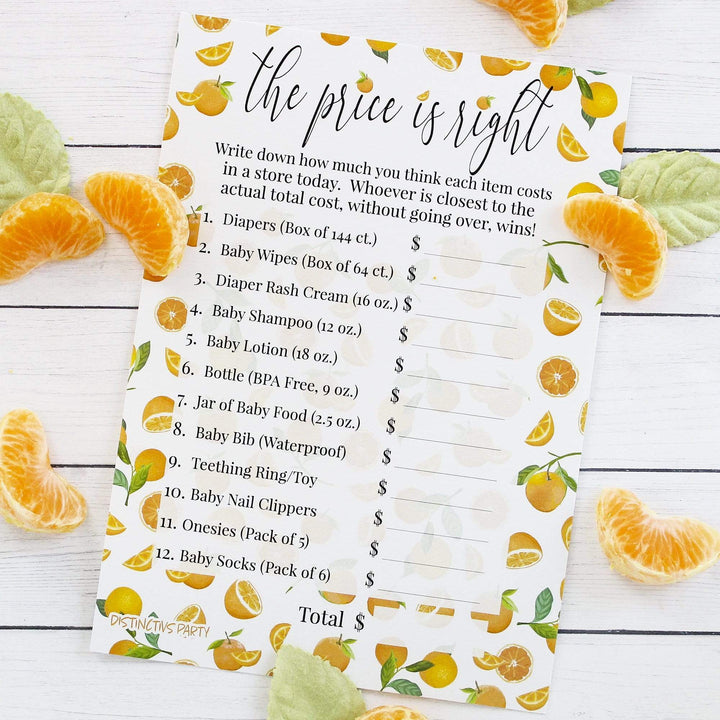 the price is right
Write down how much you think each item costs
in a store today. Whoever is closest to the
actual total cost, without going over, wins!
1. Diapers (Box of 144 ct.) $
2. Baby Wipes (Box of 64 ct.) $
3. Diaper Rash Cream (16 oz.) $
4. Baby Shampoo (12 oz.) $
5. Baby Lotion (18 oz.) $
6. Bottle (BPA Free, 9 oz.) $
7. Jar of Baby Food (2.5 oz.) $
8. Baby Bib (Waterproof) $
9. Teething Ring/Toy $
10. Baby Nail Clippers $
11. Onesies (Pack of 5) $
12. Baby Socks (Pack of 6) $
Total $
DISTINCTIVS PARTY